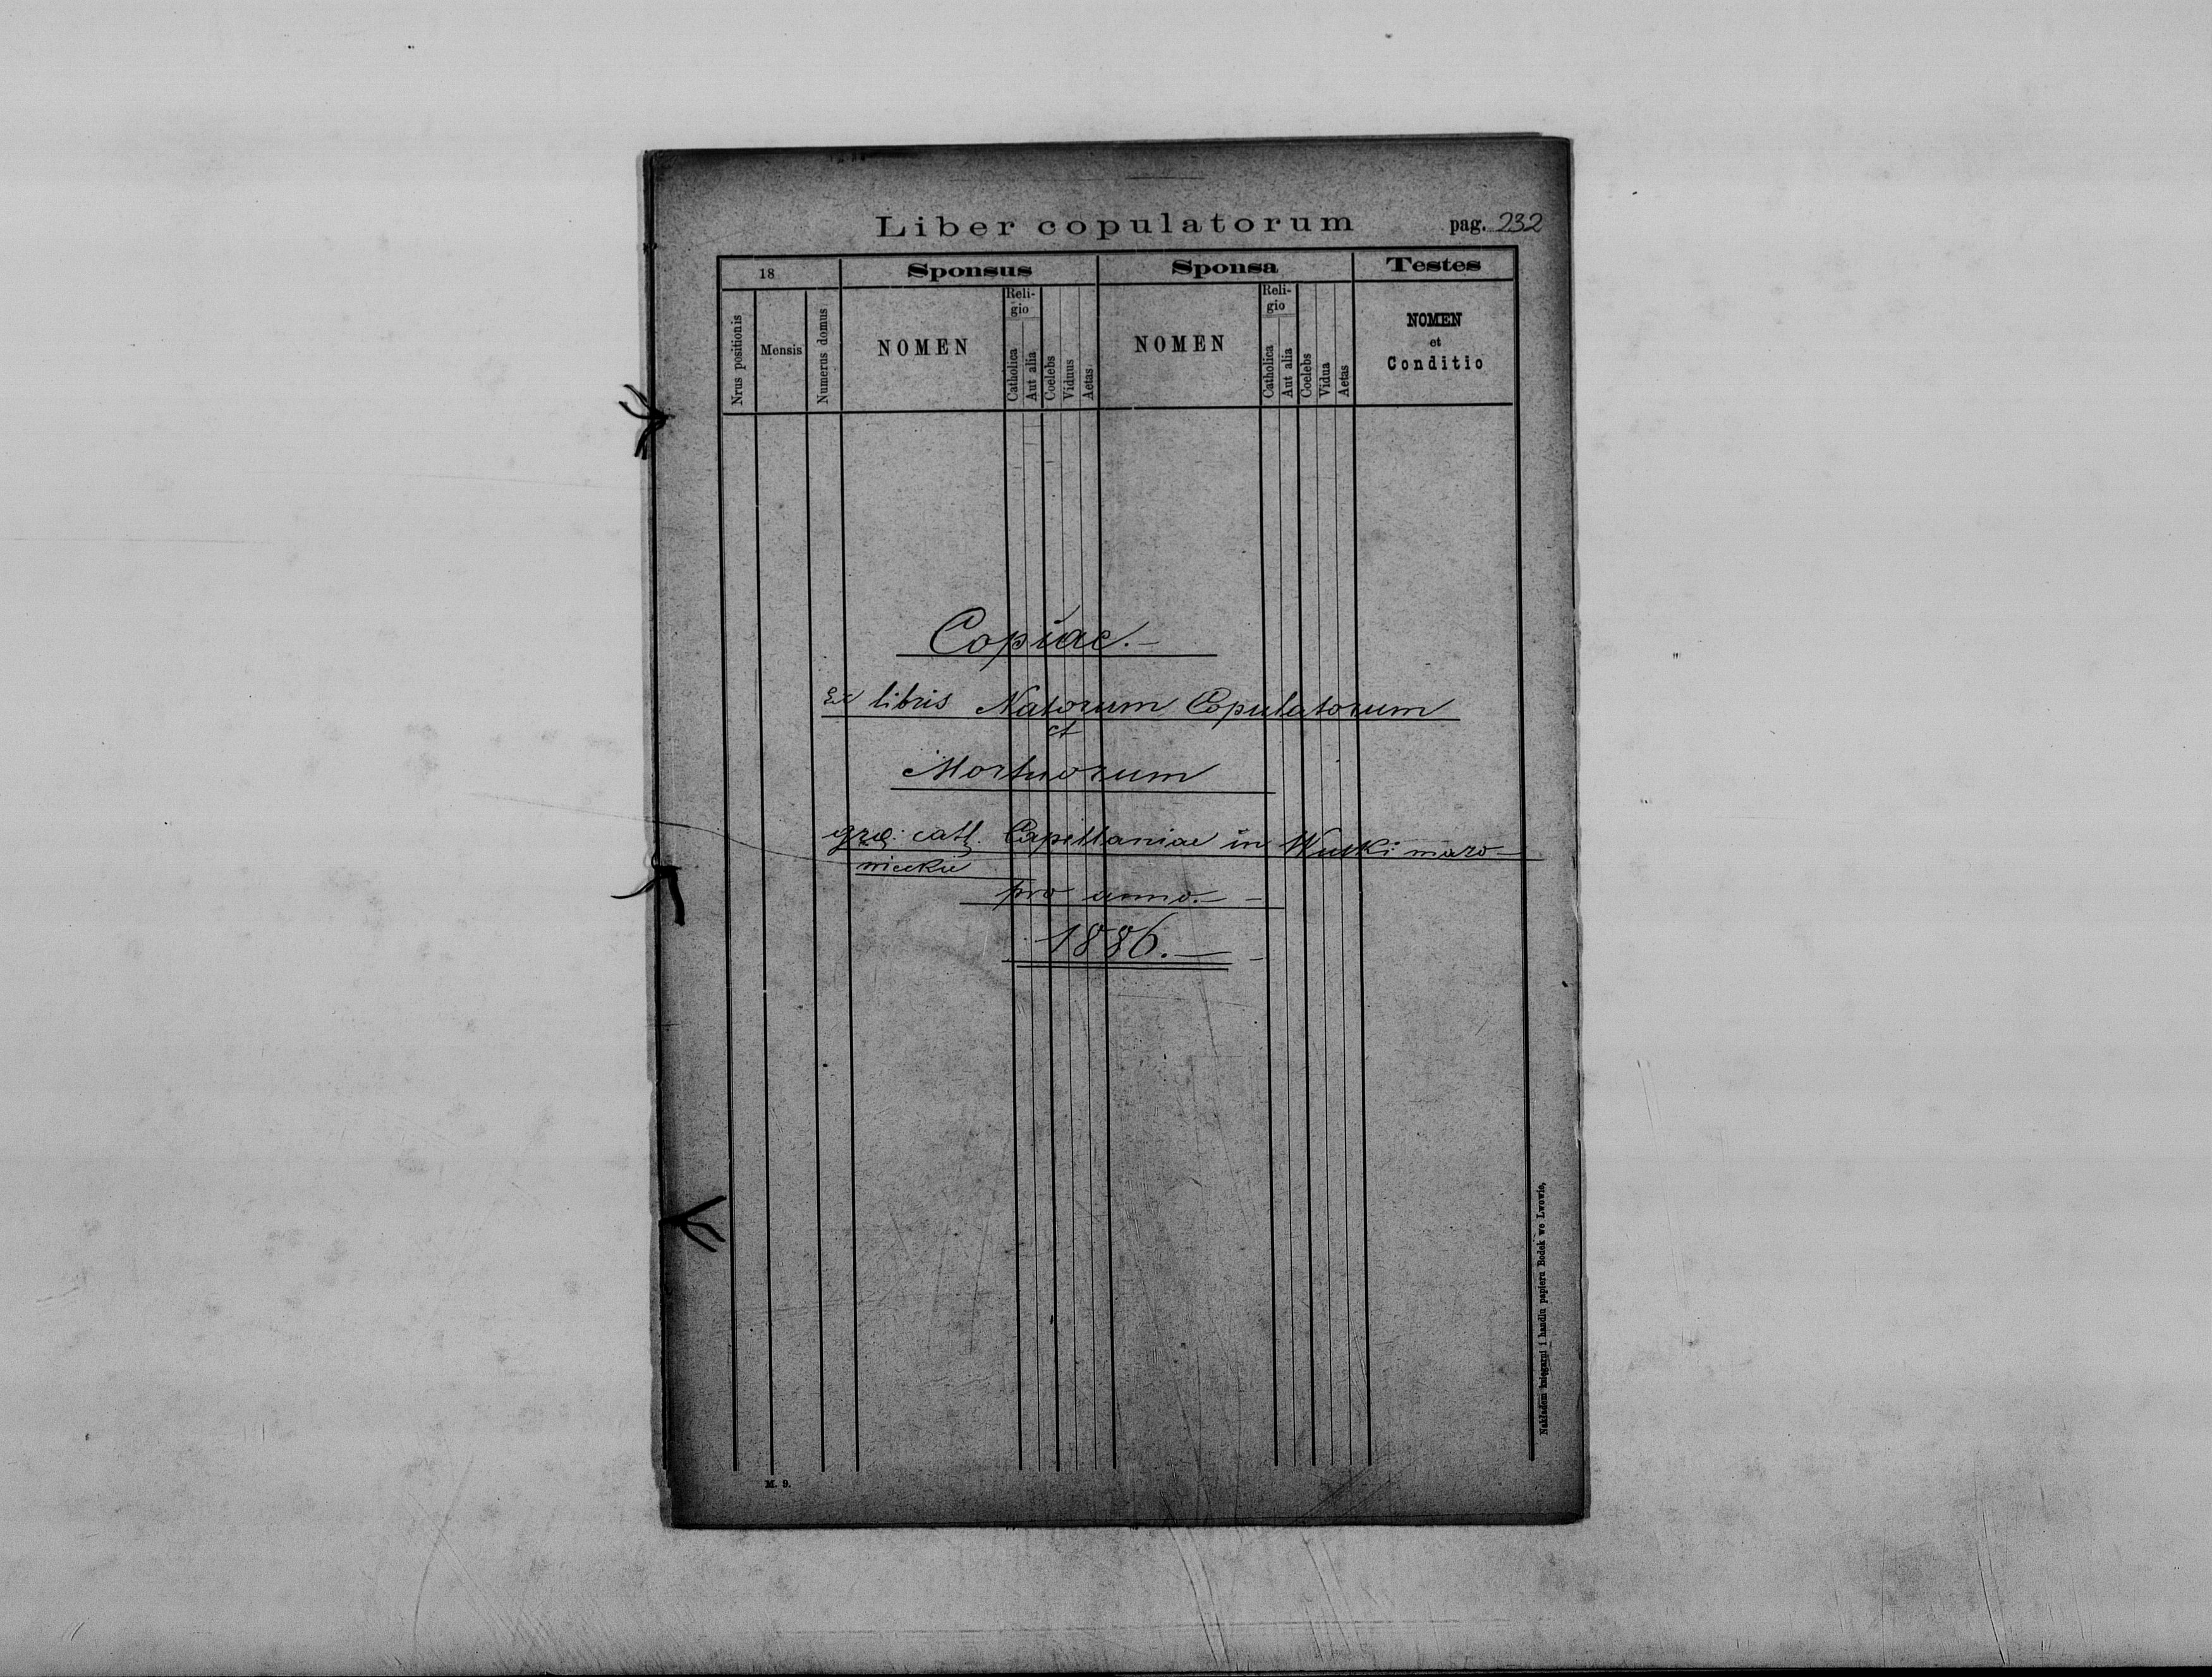 Liber copulatorum pag. 232
18 Sponsus Sponsa Testes
Nrus positionis Mensis Numerus domus NOMEN Reli-gio Catholica Aut alia Coelebs Viduus Aetas NOMEN Reli-gio Catholica Aut alia Coelebs Vidua Aetas NOMEN et Conditio
Copiae.—
Ex libris Natorum Copulatorum
et
Mortuorum
cath. Capellaniae in maro-
nieckie
pro anno.—
1886.—
Nakładem księgarni i handlu papieru Bodek we Lwowie,
M. 9.